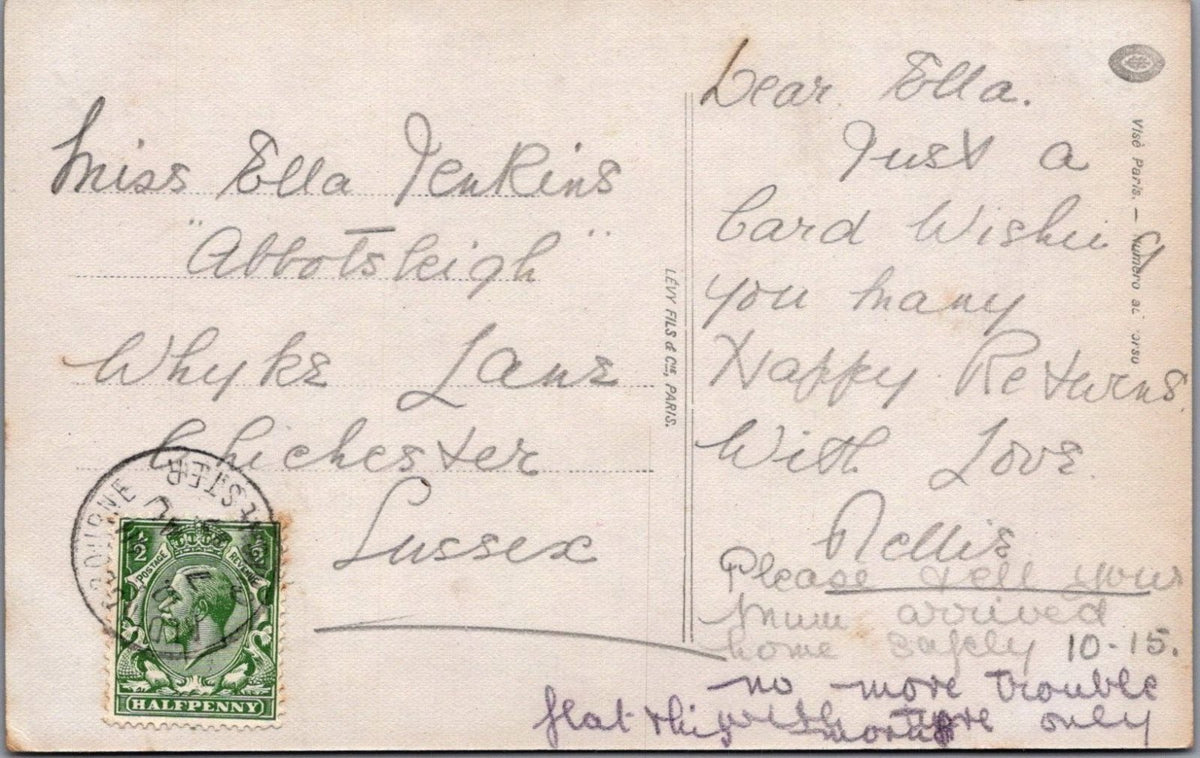 Miss Ella Jenkins
"Abbotsleigh"
Whyke Lane
Chichester
Sussex
Dear Ella.
Just a
Card Wishing
you many
Happy Returns.
With Love
Nellie
Please tell your
Mum arrived
home safely 10-15.
no more trouble
with tyre only
flat this morning
LÉVY FILS & Cie, PARIS.
Visé Paris. - Numéro au verso
BOURNE
½ ½
POSTAGE REVENUE
HALFPENNY